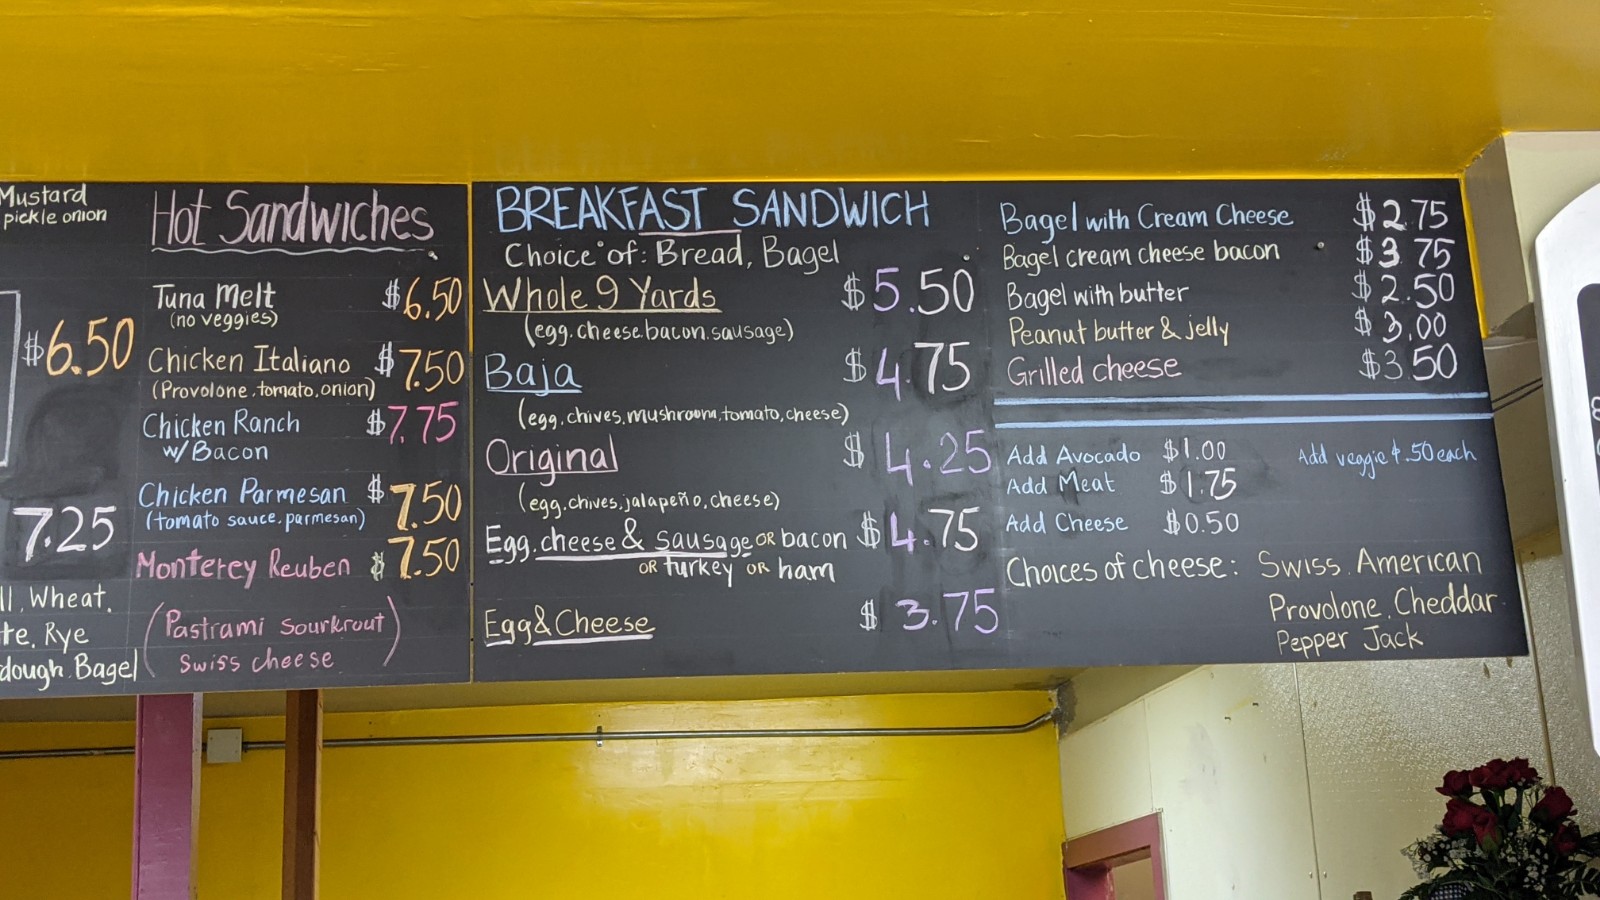 Mustard
pickle onion
$6.50
7.25
Wheat,
Rye
Bagel
Hot Sandwiches
Tuna Melt $6.50
(no veggies)
Chicken Italiano $7.50
(Provolone, tomato, onion)
Chicken Ranch $7.75
w/ Bacon
Chicken Parmesan $7.50
(tomato sauce, parmesan)
Monterey Reuben $7.50
(Pastrami sourkrout
swiss cheese)
BREAKFAST SANDWICH
Choice of: Bread, Bagel
Whole 9 Yards $5.50
(egg, cheese, bacon, sausage)
Baja $4.75
(egg, chives, mushroom, tomato, cheese)
Original $4.25
(egg, chives, jalapeño, cheese)
Egg, cheese & sausage OR bacon $4.75
OR turkey OR ham
Egg & Cheese $3.75
Bagel with Cream Cheese $2.75
Bagel cream cheese bacon $3.75
Bagel with butter $2.50
Peanut butter & jelly $3.00
Grilled cheese $3.50
Add Avocado $1.00 Add veggie $.50 each
Add Meat $1.75
Add Cheese $0.50
Choices of cheese: Swiss, American
Provolone, Cheddar
Pepper Jack